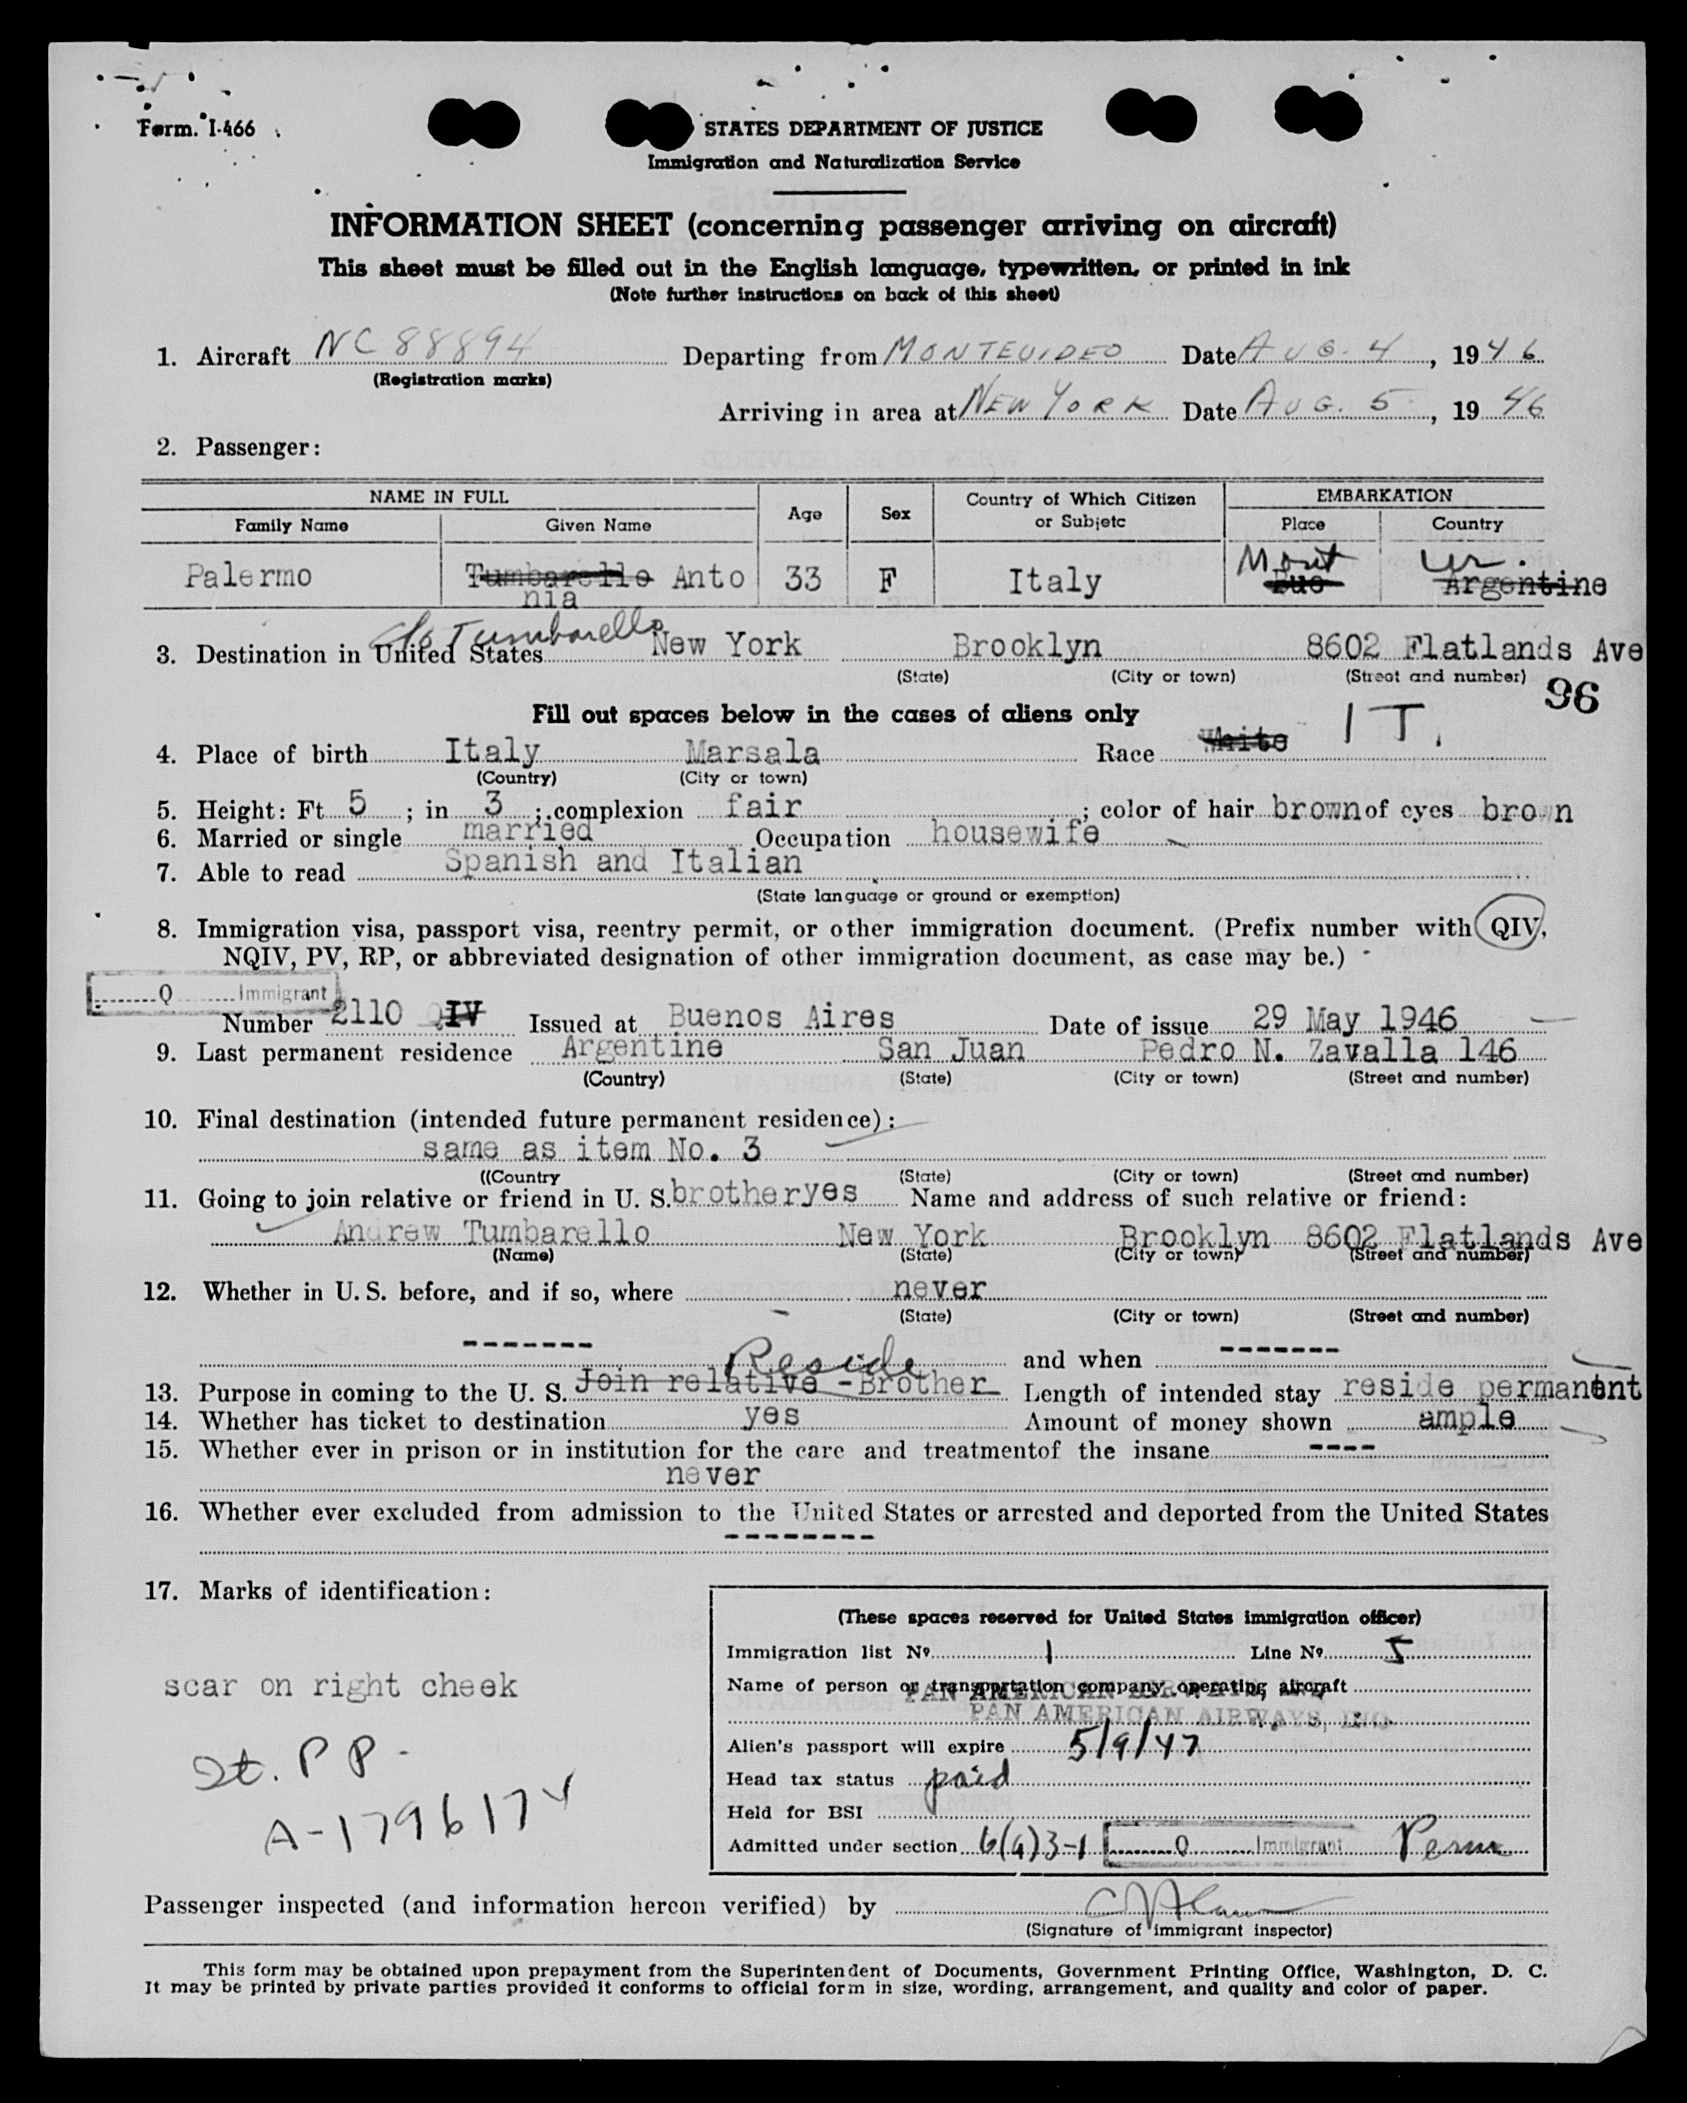 Form. I-466
STATES DEPARTMENT OF JUSTICE
Immigration and Naturalization Service
INFORMATION SHEET (concerning passenger arriving on aircraft)
This sheet must be filled out in the English language, typewritten, or printed in ink
(Note further instructions on back of this sheet)
1. Aircraft NC 88894 Departing from MONTEVIDEO Date AUG. 4, 1946
(Registration marks)
Arriving in area at NEW YORK Date AUG. 5, 1946
2. Passenger:
NAME IN FULL Age Sex Country of Which Citizen or Subjetc EMBARKATION
Family Name Given Name Place Country
Palermo Tumbarello Antonia 33 F Italy Mont Bue Ur. Argentine
c/o Tumbarello
3. Destination in United States New York Brooklyn 8602 Flatlands Ave
(State) (City or town) (Street and number)
96
Fill out spaces below in the cases of aliens only
4. Place of birth Italy Marsala Race White IT.
(Country) (City or town)
5. Height: Ft 5 ; in 3 ; complexion fair ; color of hair brown of eyes brown
6. Married or single married Occupation housewife
7. Able to read Spanish and Italian
(State language or ground or exemption)
8. Immigration visa, passport visa, reentry permit, or other immigration document. (Prefix number with QIV,
NQIV, PV, RP, or abbreviated designation of other immigration document, as case may be.)
Q Immigrant
Number 2110 QIV Issued at Buenos Aires Date of issue 29 May 1946
9. Last permanent residence Argentine San Juan Pedro N. Zavalla 146
(Country) (State) (City or town) (Street and number)
10. Final destination (intended future permanent residence):
same as item No. 3
((Country (State) (City or town) (Street and number)
11. Going to join relative or friend in U. S. brother yes Name and address of such relative or friend:
Andrew Tumbarello New York Brooklyn 8602 Flatlands Ave
(Name) (State) (City or town) (Street and number)
12. Whether in U. S. before, and if so, where never
(State) (City or town) (Street and number)
------- and when -------
Reside
13. Purpose in coming to the U. S. Join relative -Brother Length of intended stay reside permanent
14. Whether has ticket to destination yes Amount of money shown ample
15. Whether ever in prison or in institution for the care and treatmentof the insane ----
never
16. Whether ever excluded from admission to the United States or arrested and deported from the United States
--------
17. Marks of identification:
scar on right cheek
It. PP-
A-1796174
(These spaces reserved for United States immigration officer)
Immigration list Nº 1 Line Nº 5
Name of person or transportation company operating aircraft
PAN AMERICAN AIRWAYS, INC.
PAN AMERICAN AIRWAYS, INC.
Alien's passport will expire 5/9/47
Head tax status paid
Held for BSI
Admitted under section 6(a)3-1 Q Immigrant Perm
Passenger inspected (and information hereon verified) by
(Signature of immigrant inspector)
This form may be obtained upon prepayment from the Superintendent of Documents, Government Printing Office, Washington, D. C.
It may be printed by private parties provided it conforms to official form in size, wording, arrangement, and quality and color of paper.